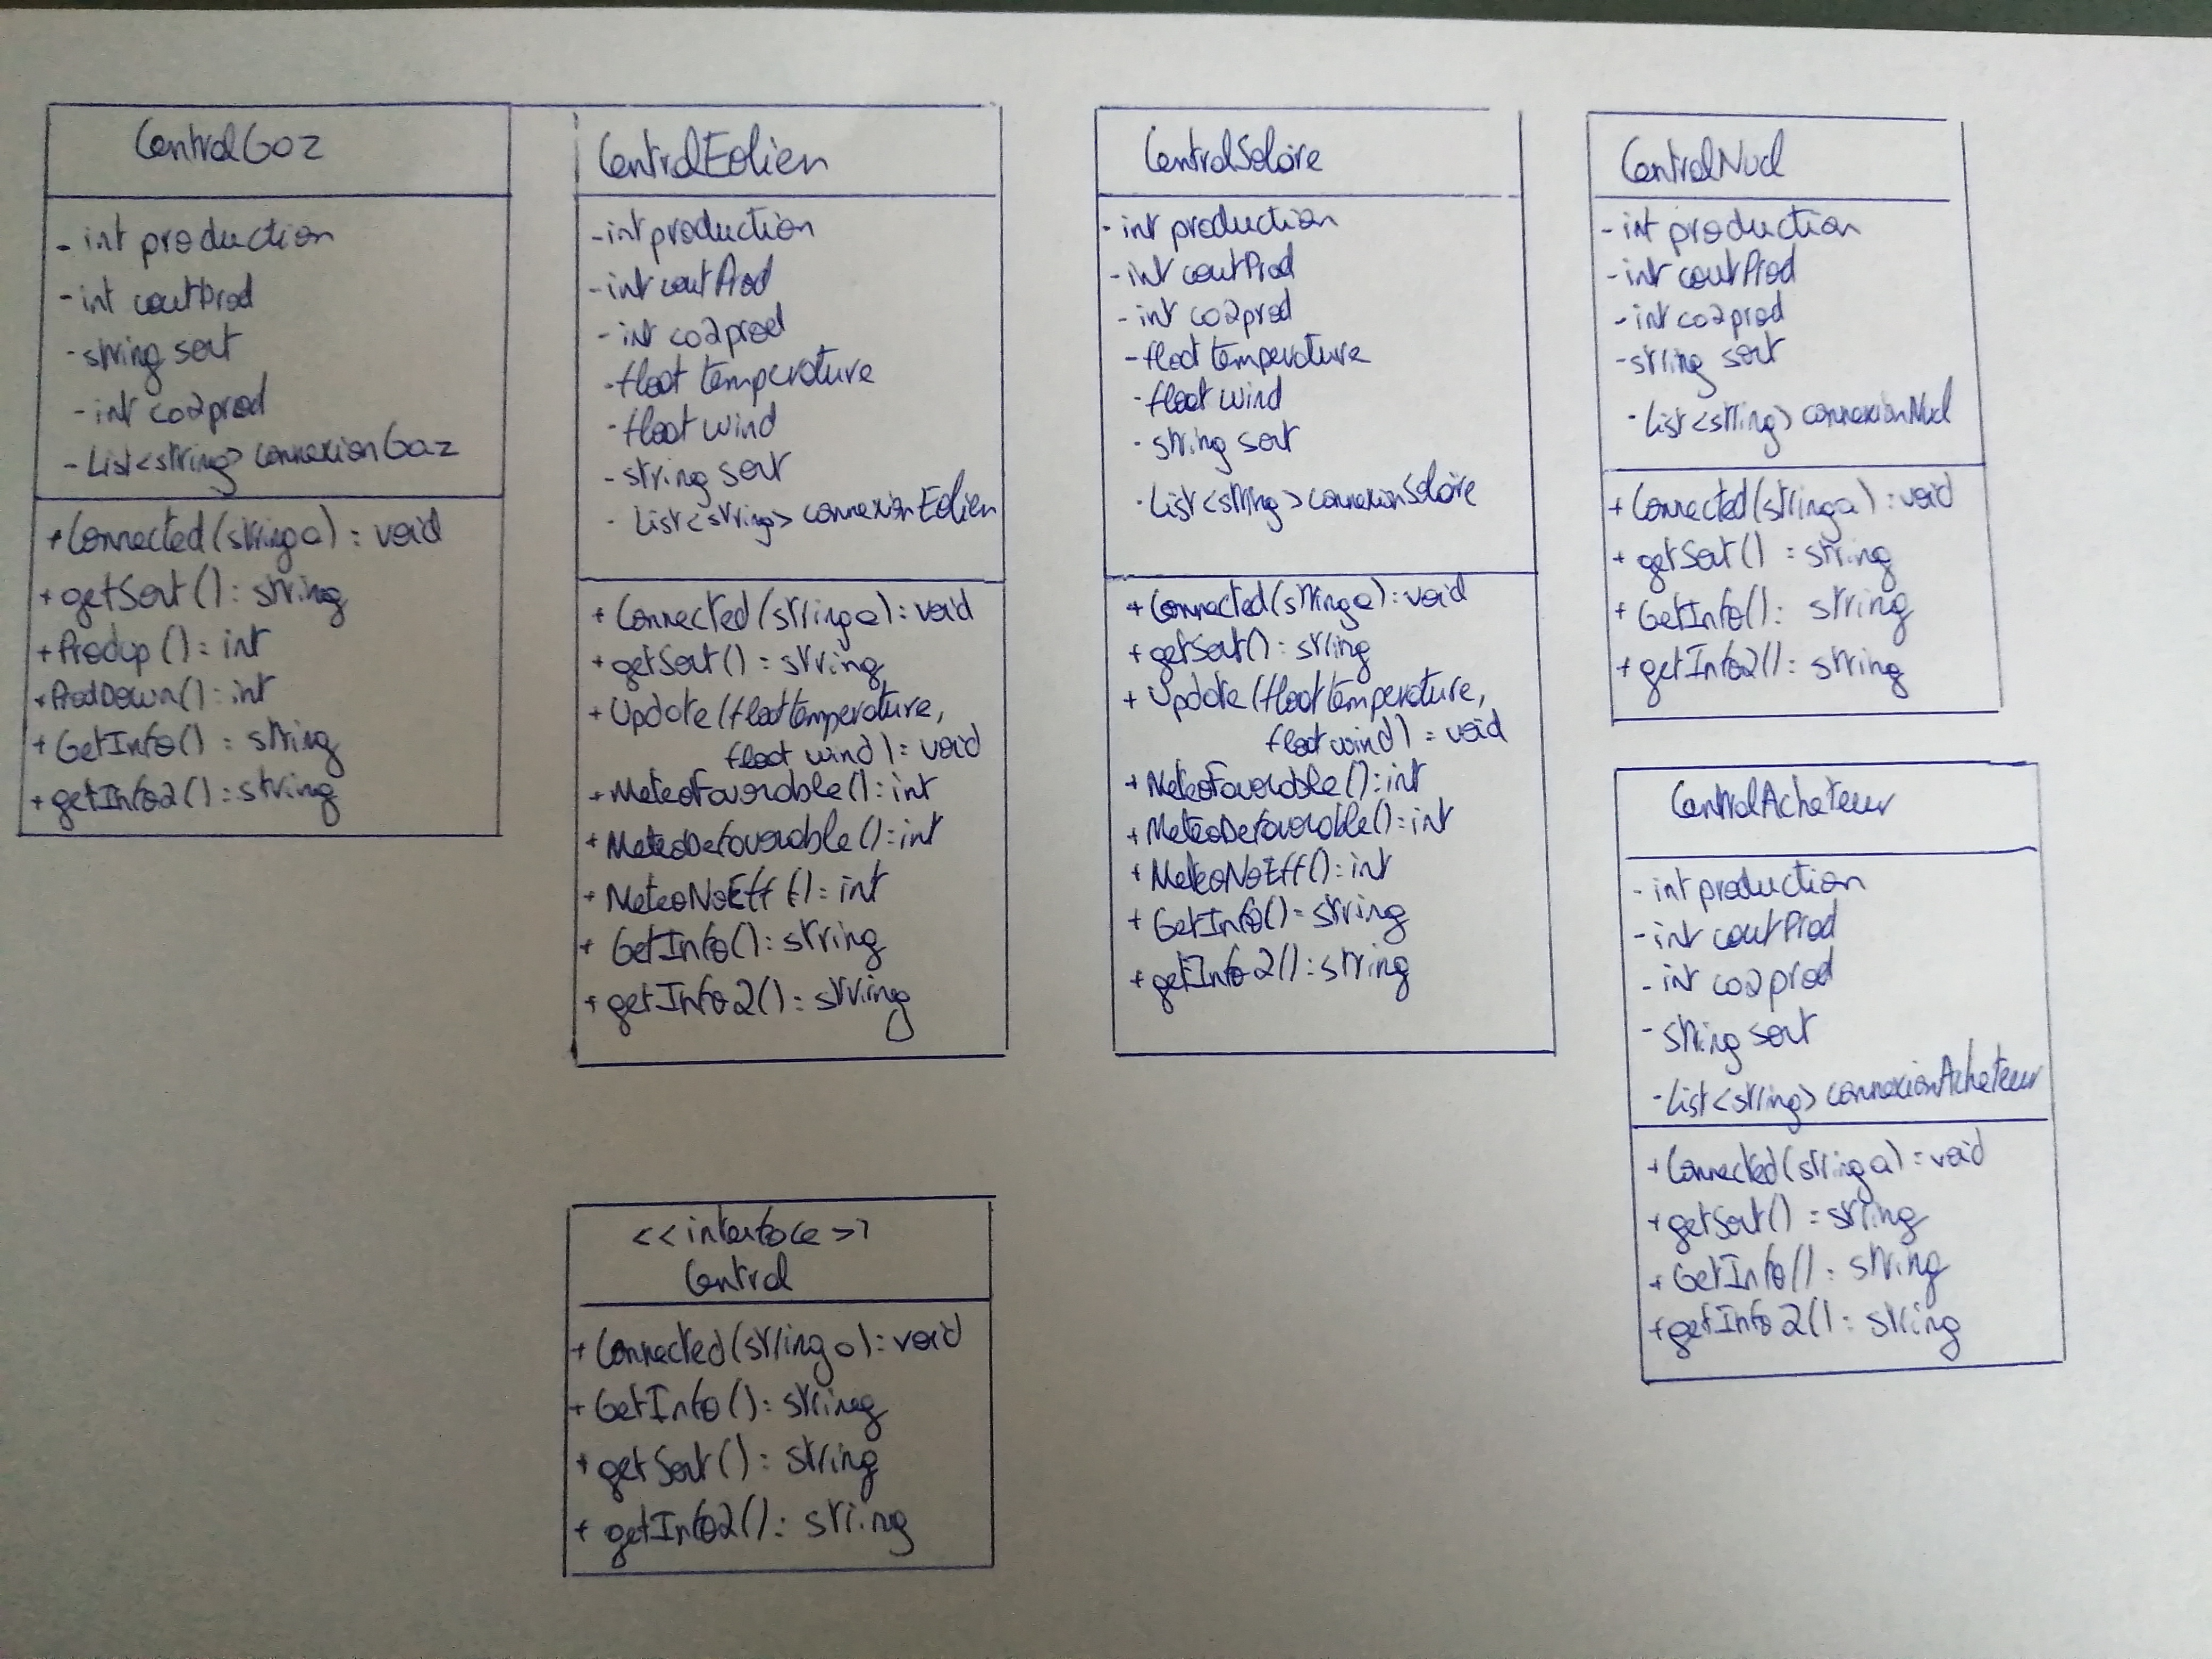 CentralGaz
- int production
- int coutProd
- string sort
- int co2prod
- List<string> connexionGaz
+ Connected(string a) : void
+ getSort() : string
+ Produp() : int
+ ProdDown() : int
+ GetInfo() : string
+ getInfo2() : string
CentralEolien
- int production
- int coutProd
- int co2prod
- float temperature
- float wind
- string sort
- List<string> connexionEolien
+ Connected(string a) : void
+ getSort() : string
+ Update(float temperature,
float wind) : void
+ MeteoFavorable() : int
+ MeteoDefavorable() : int
+ MeteoNoEff() : int
+ GetInfo() : string
+ getInfo2() : string
CentralSolaire
- int production
- int coutProd
- int co2prod
- float temperature
- float wind
- string sort
- List<string> connexionSolaire
+ Connected(string a) : void
+ getSort() : string
+ Update(float temperature,
float wind) : void
+ MeteoFavorable() : int
+ MeteoDefavorable() : int
+ MeteoNoEff() : int
+ GetInfo() : string
+ getInfo2() : string
CentralNucl
- int production
- int coutProd
- int co2prod
- string sort
- List<string> connexionNucl
+ Connected(string a) : void
+ getSort() : string
+ GetInfo() : string
+ getInfo2() : string
CentralAcheteur
- int production
- int coutProd
- int co2prod
- string sort
- List<string> connexionAcheteur
+ Connected(string a) : void
+ getSort() : string
+ GetInfo() : string
+ getInfo2() : string
<<interface>>
Central
+ Connected(string a) : void
+ GetInfo() : string
+ getSort() : string
+ getInfo2() : string